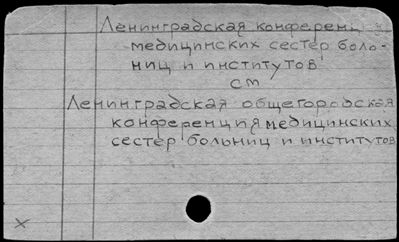 Ленинградская конференц
медицинских сестер боль-
ниц и институтов
см
Ленинградская общегородская
конференция медицинских
сестер больниц и институтов
х